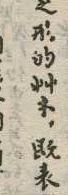 之形的艸木，既表